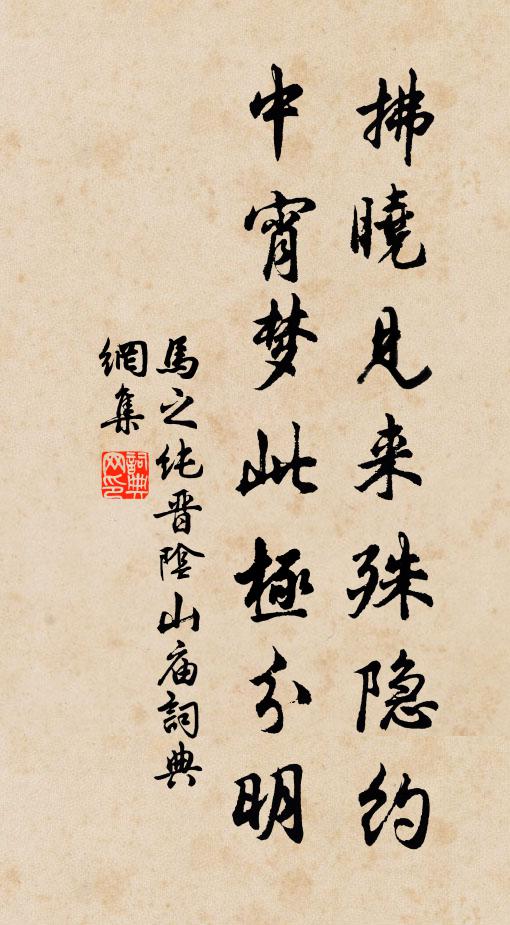 拂曉見来殊隐约
中宵梦此極分明
馬之纯晋陰山庙詞典
網集
詞典網印